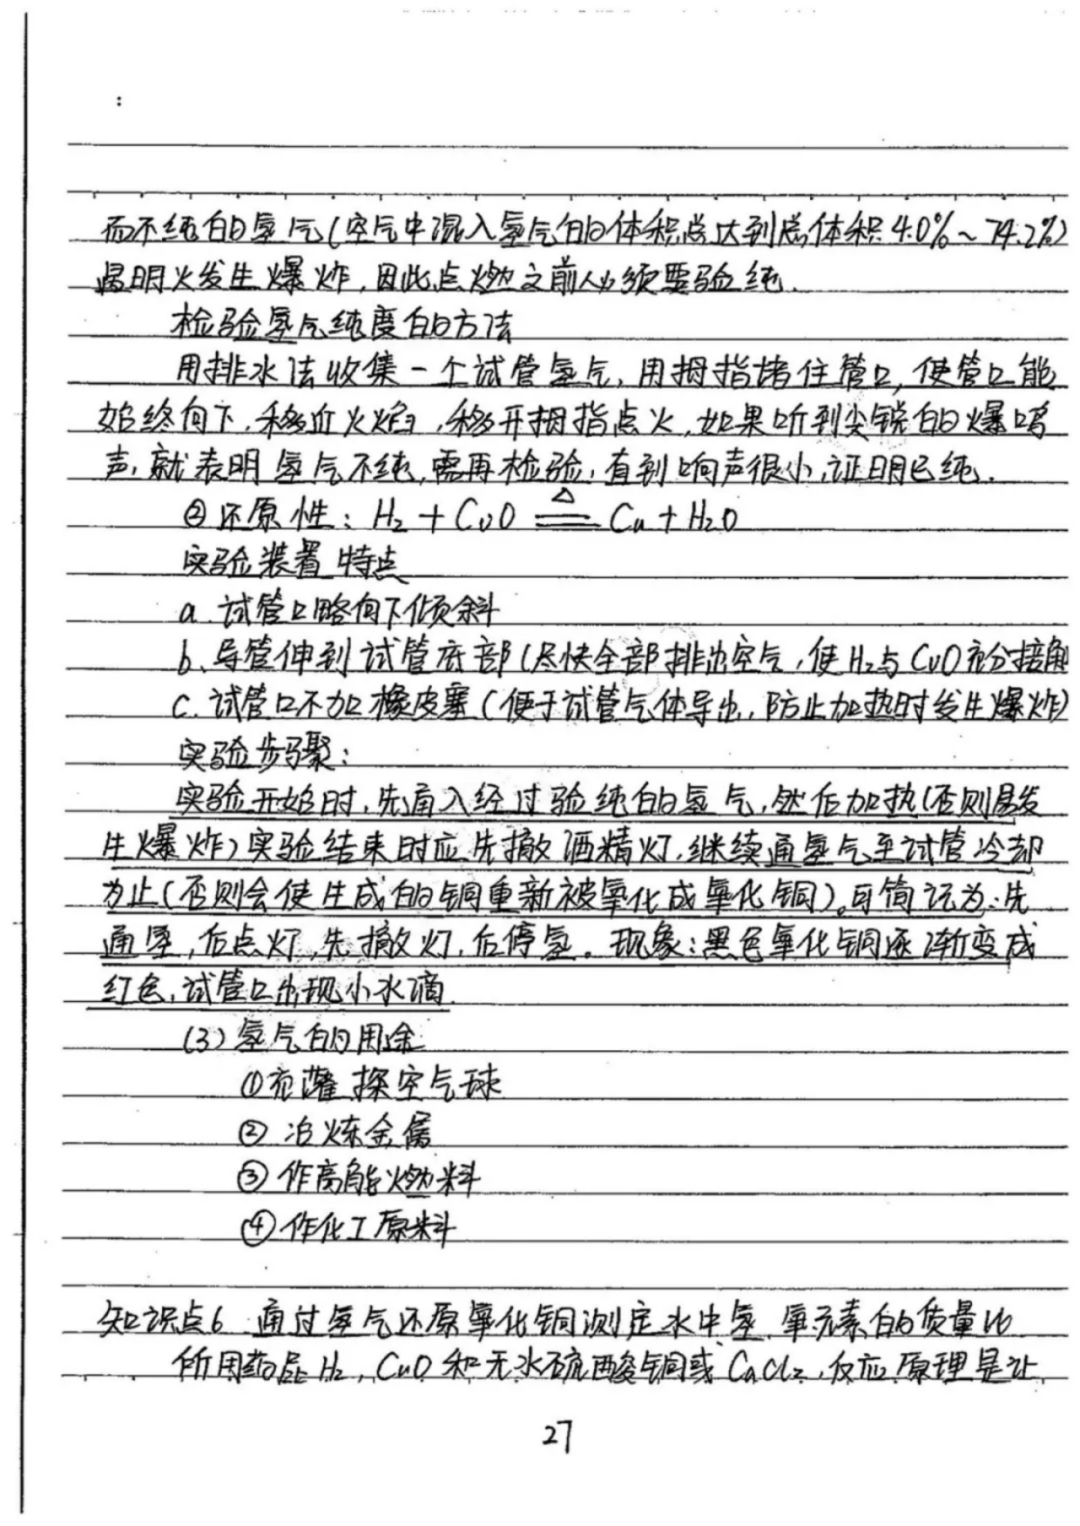 而不纯的氢气(空气中混入氢气的体积总达到总体积4.0%~74.2%)
遇明火发生爆炸,因此点燃之前必须要验纯.
检验氢气纯度的方法
用排水法收集一个试管氢气,用拇指堵住管口,使管口能
始终向下,移近火焰,移开拇指点火,如果听到尖锐的爆鸣
声,就表明氢气不纯,需再检验,直到响声很小,证明已纯.
②还原性: H₂+CuO ≜ Cu+H₂O
实验装置特点
a.试管口略向下倾斜
b.导管伸到试管底部(尽快全部排出空气,使H₂与CuO充分接触
c.试管口不加橡皮塞(便于试管气体导出,防止加热时发生爆炸)
实验步骤:
实验开始时,先通入经过验纯的氢气,然后加热(否则易发
生爆炸)实验结束时应先撤酒精灯.继续通氢气至试管冷却
为止(否则会使生成的铜重新被氧化成氧化铜)。可简记为:先
通氢,后点灯,先撤灯,后停氢。现象:黑色氧化铜逐渐变成
红色,试管口出现小水滴.
(3)氢气的用途
①充灌探空气球
②冶炼金属
③作高能燃料
④作化工原料
知识点6 通过氢气还原氧化铜测定水中氢.氧元素的质量比
所用药品H₂,CuO和无水硫酸铜或CaCl₂,反应原理是让
27